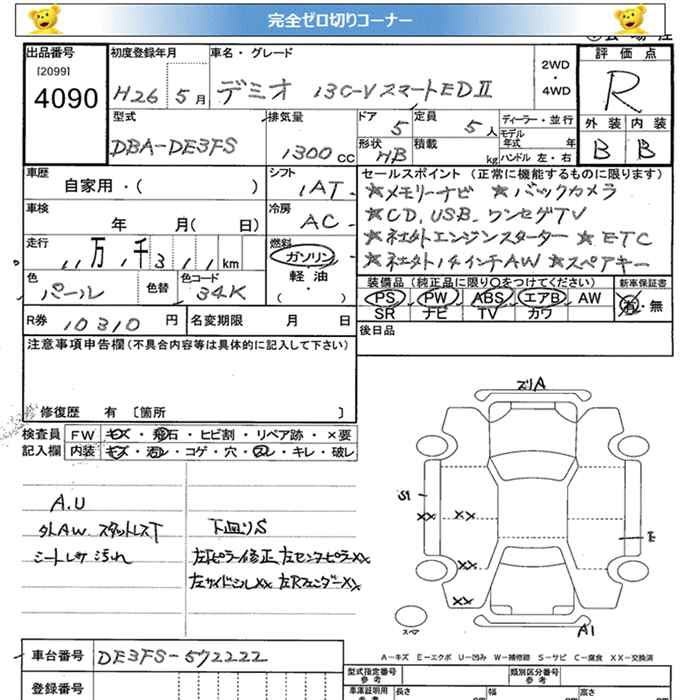 完全ゼロ切りコーナー
出品番号 初度登録年月 車名・グレード 2WD・4WD 評価点
[2099]
4090 H26 5月 デミオ 13C-V スマートEDⅡ R
型式 排気量 ドア 定員 ディーラー・並行 外装 内装
DBA-DE3FS 1300cc 5 5人 モデル年式 年 B B
形状 HB 積載 kg ハンドル 左・右
車歴 シフト セールスポイント(正常に機能するものに限ります)
自家用・( ) IAT ☆メモリーナビ ☆バックカメラ
車検 冷房 ☆CD, USB, ワンセグTV
年 月( 日) AC ☆社外エンジンスターター ☆ETC
走行 燃料 ☆社外14インチAW ☆スペアキー
11万 千311km ガソリン
軽・油
( )
色 色替 色コード 装備品(純正品に限り○をつけてください) 新車保証書
パール 34K PS PW ABS エアB AW 有・無
SR ナビ TV カワ
R券 10310円 名変期限 月 日 後日品
注意事項申告欄(不具合内容等は具体的に記入して下さい)
修復歴 有 [箇所 ]
検査員 FW キズ・飛石・ヒビ割・リペア跡・×要
記入欄 内装 キズ・汚レ・コゲ・穴・スレ・キレ・破レ
A.U
外AW スタットレスT 下廻りS
シートしみ 汚れ 左Fピラー修正 左センターピラーXX
左サイドシルXX 左RフェンダーXX
ズリA
S
XX XX
E
XX
XX
スペア
A1
A-キズ E-エクボ U-凹み W-補修跡 S-サビ C-腐食 XX-交換済
車台番号 DE3FS-572222
登録番号
型式指定番号 参考 類別区分番号 参考
車庫証明用 長さ 幅 高さ